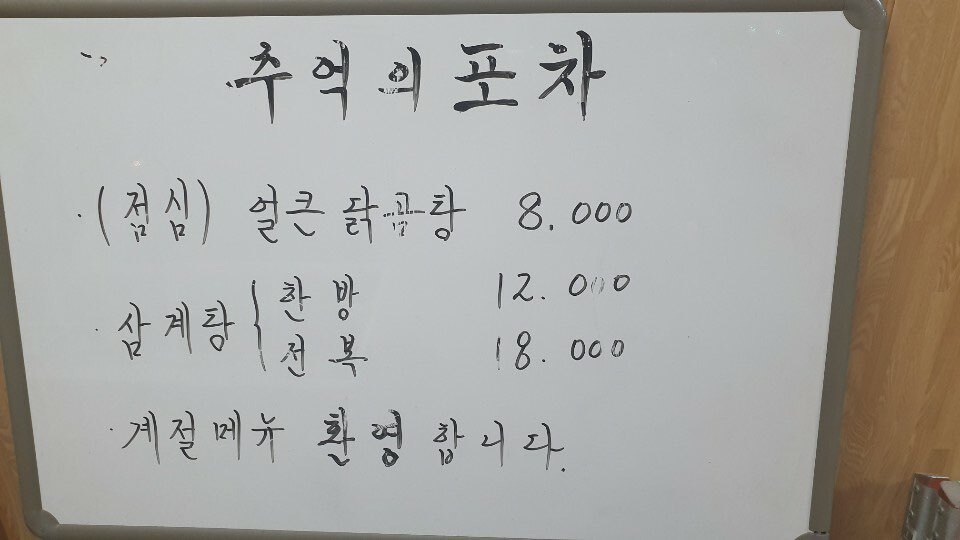 추억의 포차
·(점심) 얼큰 닭곰탕 8.000
·삼계탕 { 한방 12.000
전복 18.000
·계절메뉴 환영합니다.